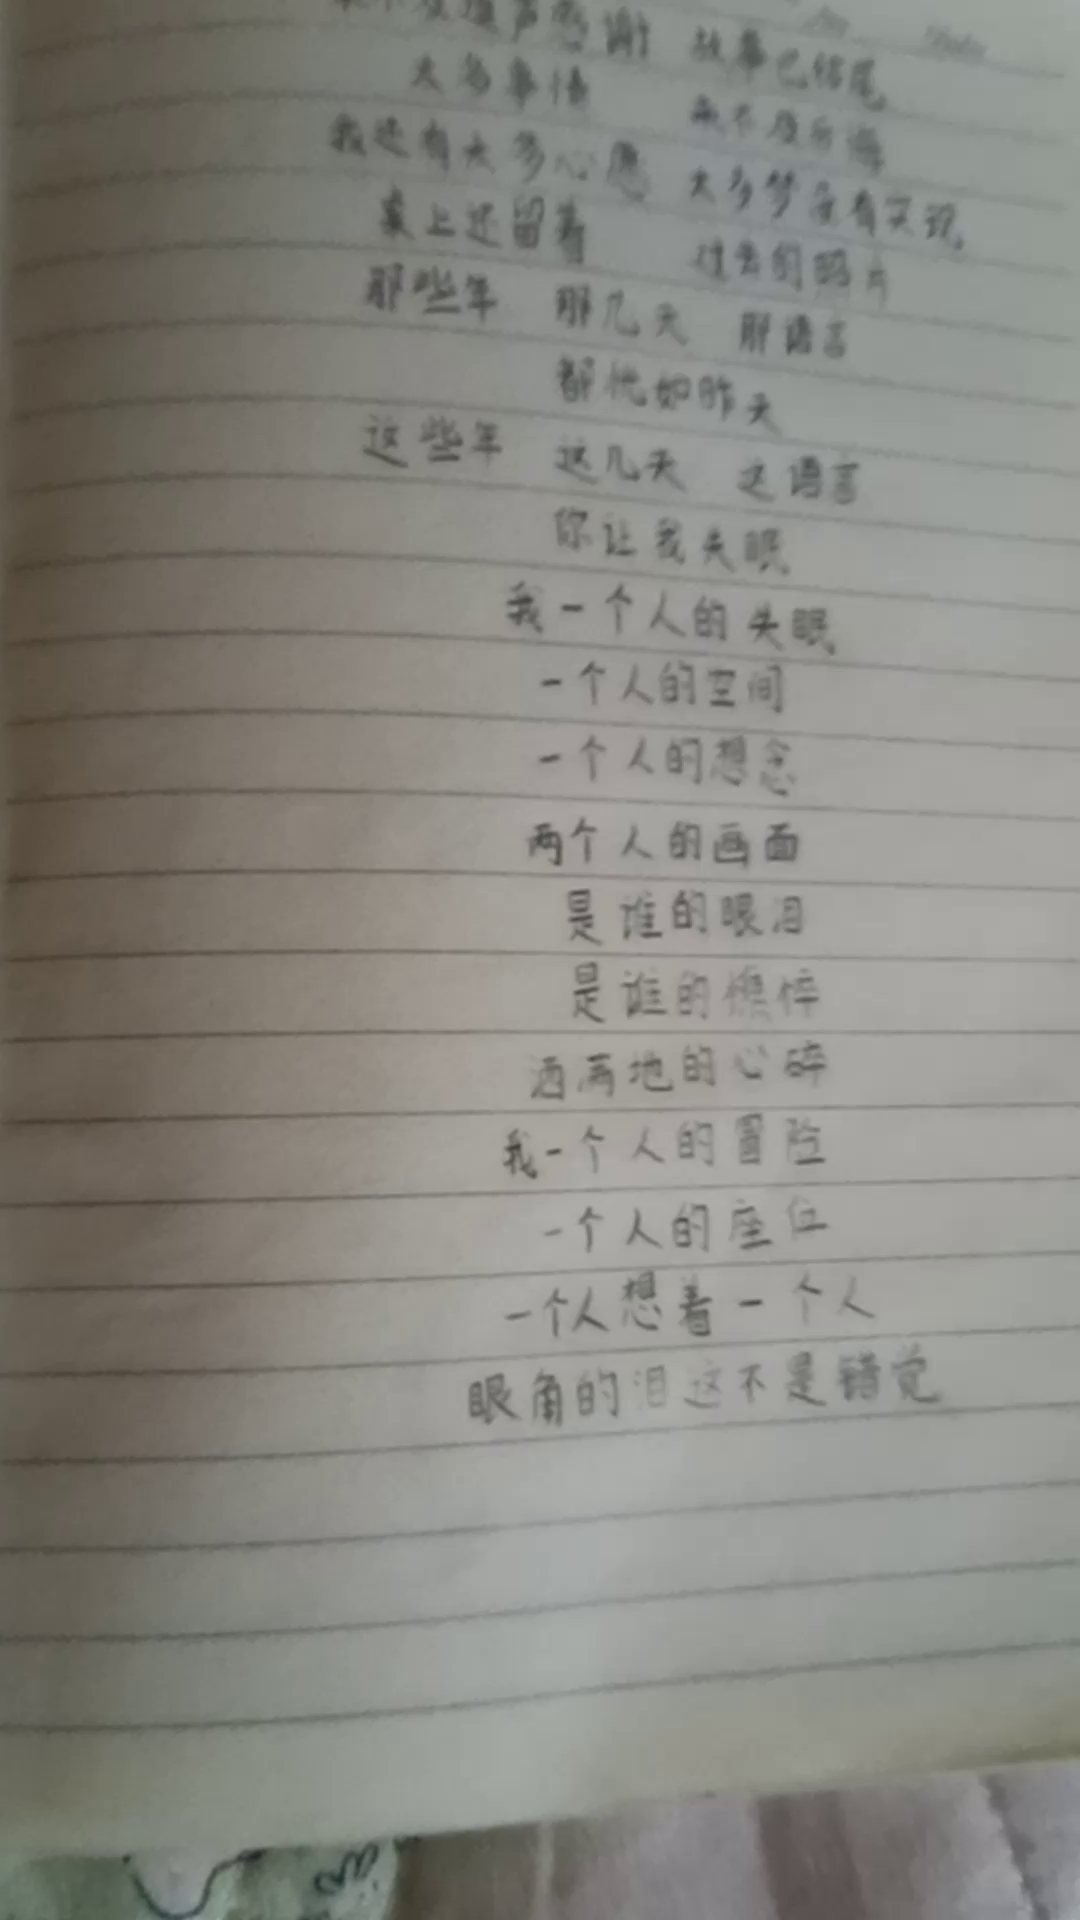 来不及道声感谢 故事已结尾
太多事情 来不及后悔
我还有太多心愿 太多梦没有实现
桌上还留着 过去的照片
那些年 那几天 那语言
都恍如昨天
这些年 这几天 这语言
你让我失眠
我一个人的失眠
一个人的空间
一个人的想念
两个人的画面
是谁的眼泪
是谁的憔悴
洒满地的心碎
我一个人的冒险
一个人的座位
一个人想着一个人
眼角的泪这不是错觉